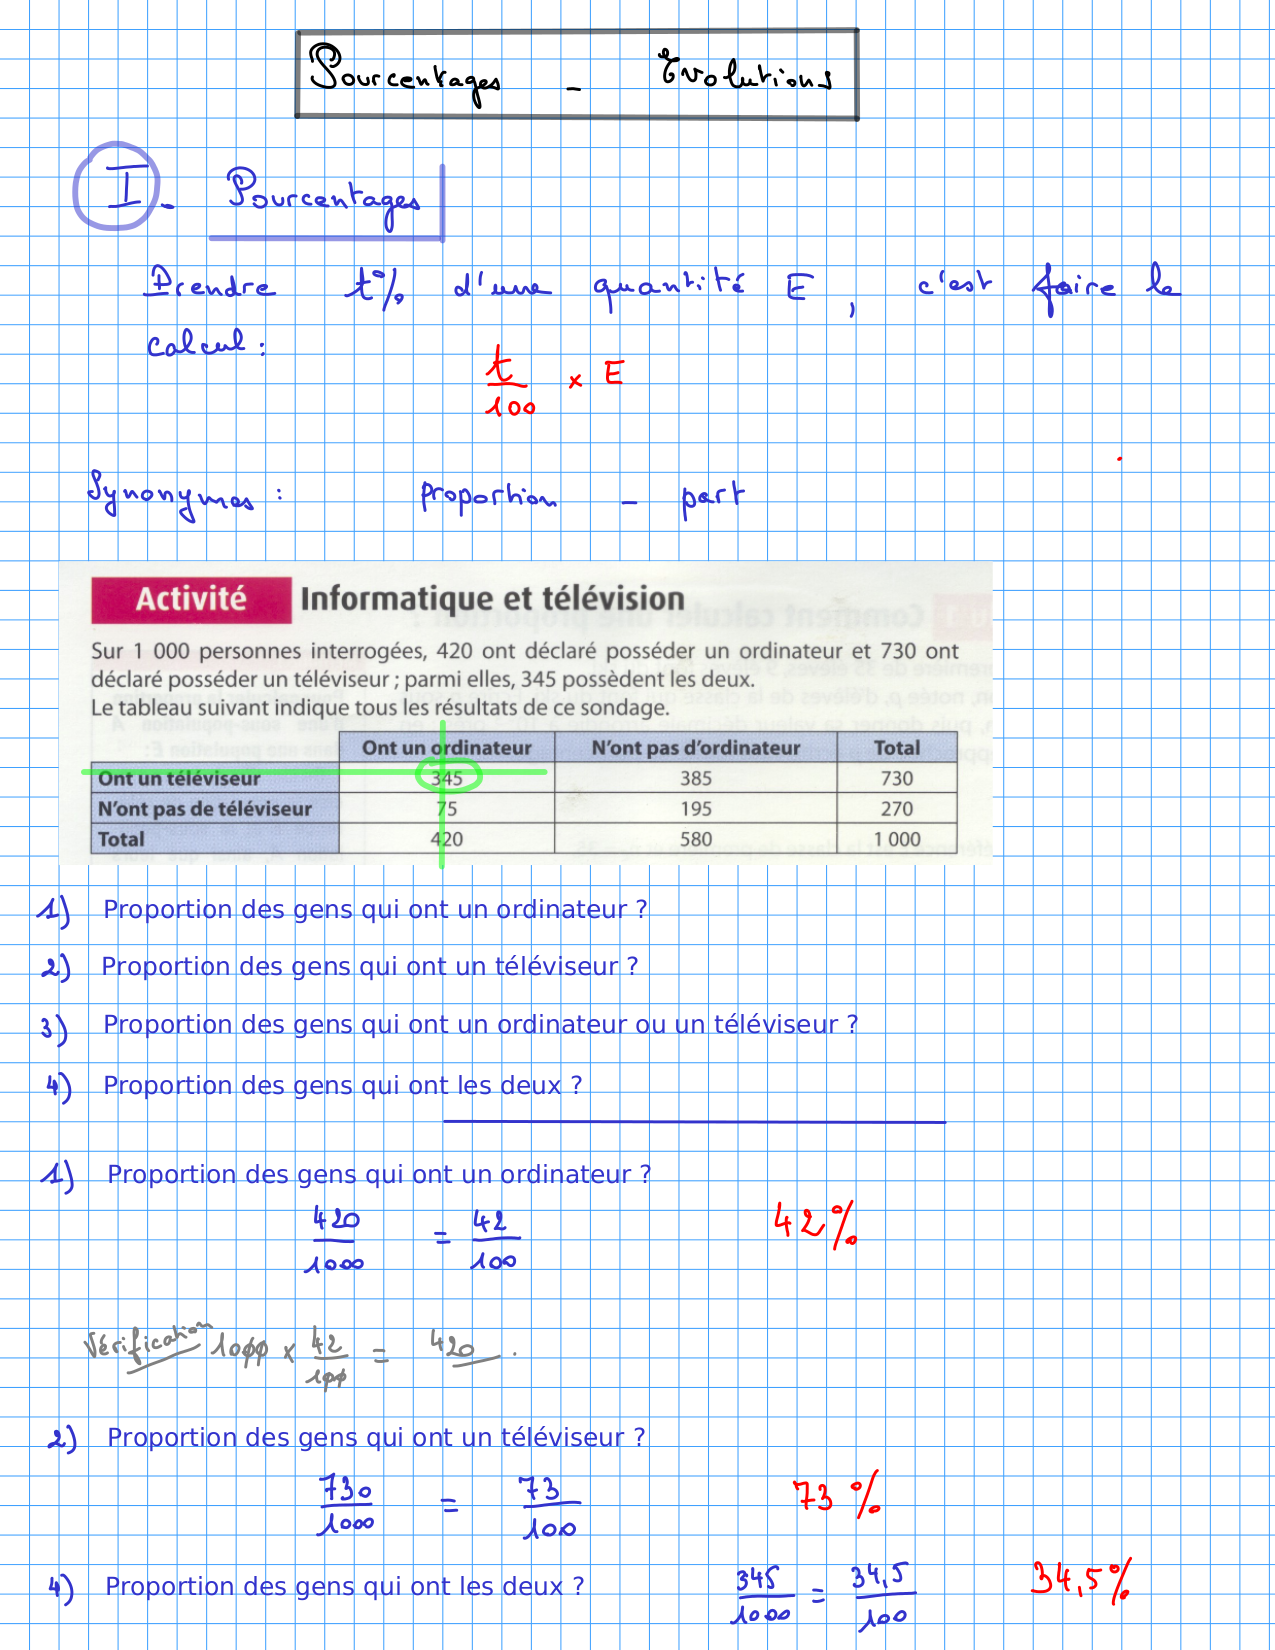 Pourcentages - Evolutions
I - Pourcentages
Prendre t% d'une quantité E, c'est faire le
calcul :
t/100 × E
Synonymes : proportion - part
Activité Informatique et télévision
Sur 1 000 personnes interrogées, 420 ont déclaré posséder un ordinateur et 730 ont
déclaré posséder un téléviseur ; parmi elles, 345 possèdent les deux.
Le tableau suivant indique tous les résultats de ce sondage.
Ont un ordinateur N'ont pas d'ordinateur Total
Ont un téléviseur 345 385 730
N'ont pas de téléviseur 75 195 270
Total 420 580 1 000
1) Proportion des gens qui ont un ordinateur ?
2) Proportion des gens qui ont un téléviseur ?
3) Proportion des gens qui ont un ordinateur ou un téléviseur ?
4) Proportion des gens qui ont les deux ?
1) Proportion des gens qui ont un ordinateur ?
420/1000 = 42/100 42%
Vérification 1000 × 42/100 = 420.
2) Proportion des gens qui ont un téléviseur ?
730/1000 = 73/100 73 %
4) Proportion des gens qui ont les deux ? 345/1000 = 34,5/100 34,5%